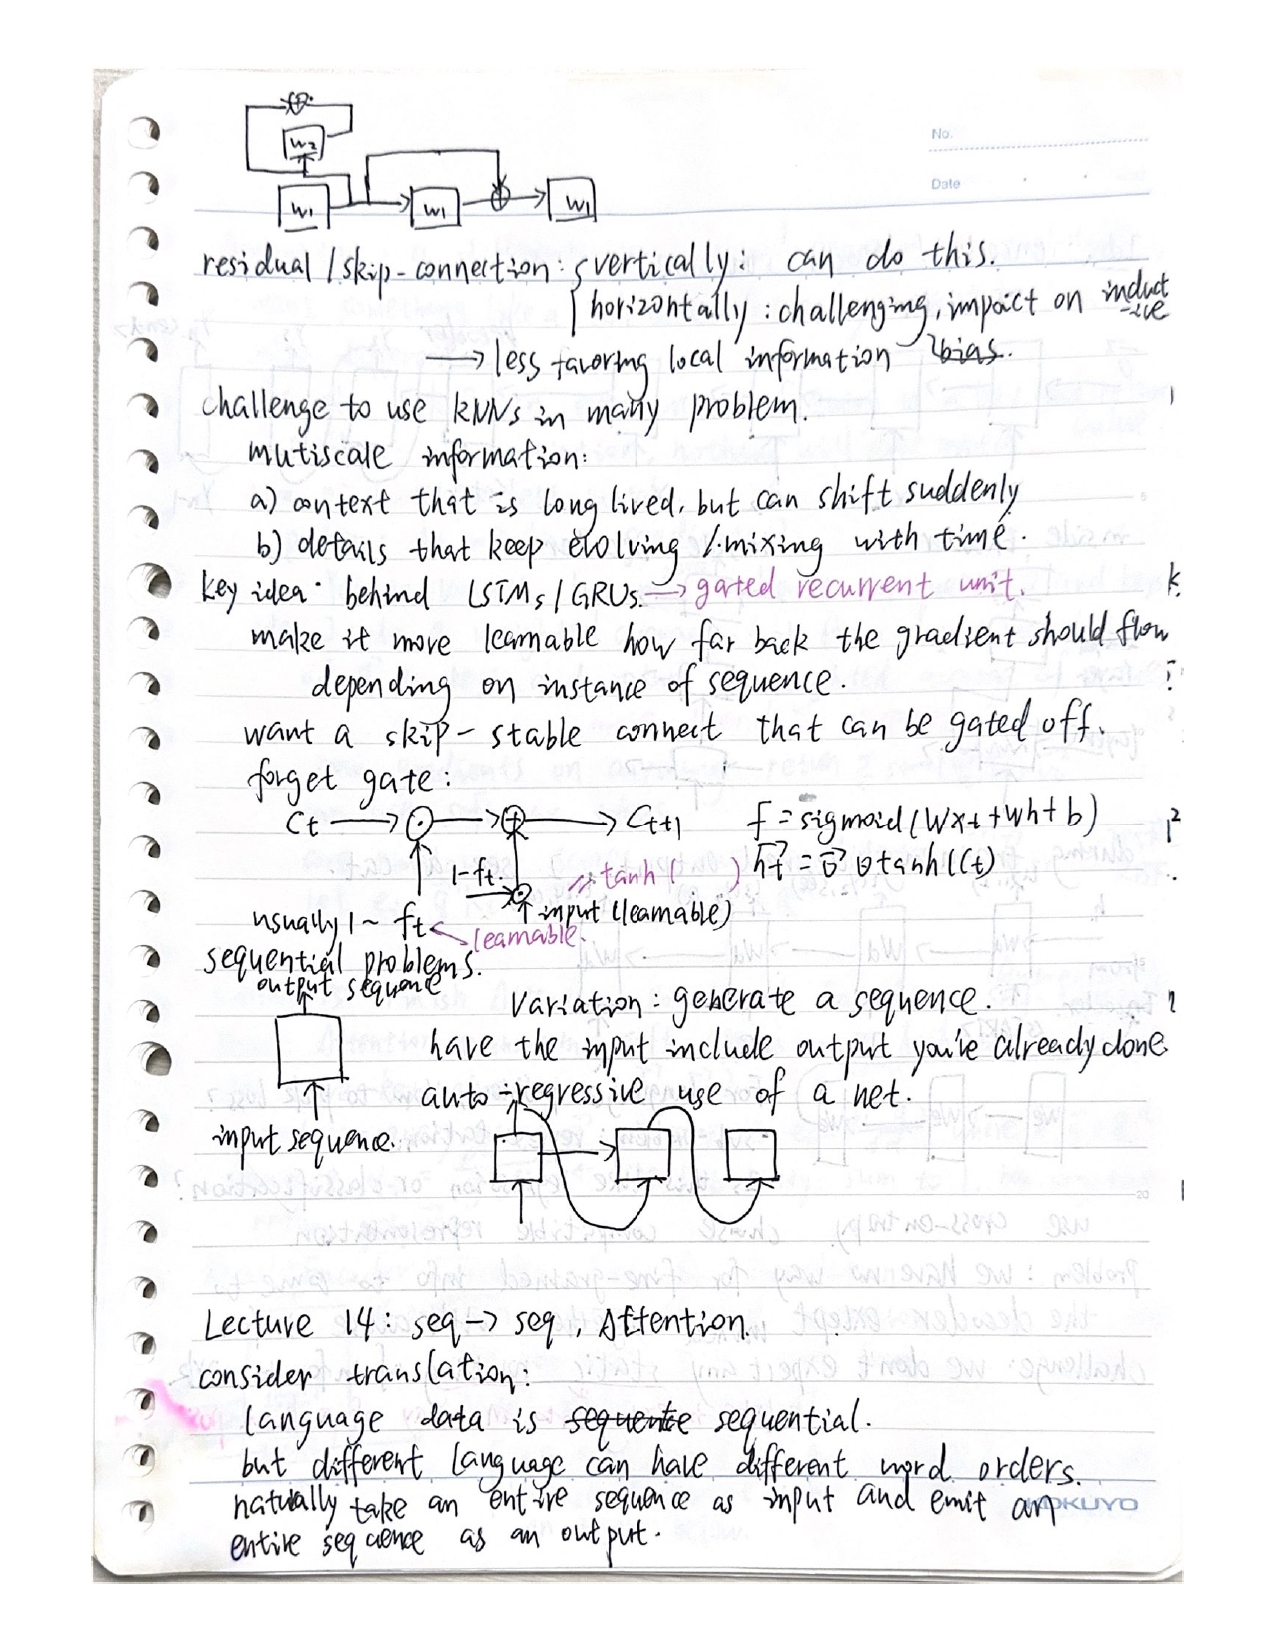 No.
Date
W2
W1
W1
W1
residual / skip-connection: { vertically: can do this.
horizontally: challenging, impact on induct
-ive
→ less favoring local information bias.
challenge to use RNNs in many problem.
mutiscale information:
a) context that is long lived, but can shift suddenly
b) details that keep evolving / mixing with time.
key idea behind LSTMs / GRUs. → gated recurrent unit.
make it more learnable how far back the gradient should flow
depending on instance of sequence.
want a skip-stable connect that can be gated off.
forget gate:
Ct → ⊙ → ⊕ → Ct+1 f = sigmoid(Wxt + Wh + b)
1-ft. tanh ( ) ht = o ⊙ tanh(Ct)
input (learnable)
usually 1 ~ ft ← learnable.
sequential problems.
output sequence
Variation: generate a sequence.
have the input include output you've already done
auto-regressive use of a net.
input sequence.
Lecture 14: seq → seq, Attention.
consider translation:
language data is sequence sequential.
but different language can have different word orders.
natually take an entire sequence as input and emit an
KOKUYO
entire sequence as an output.